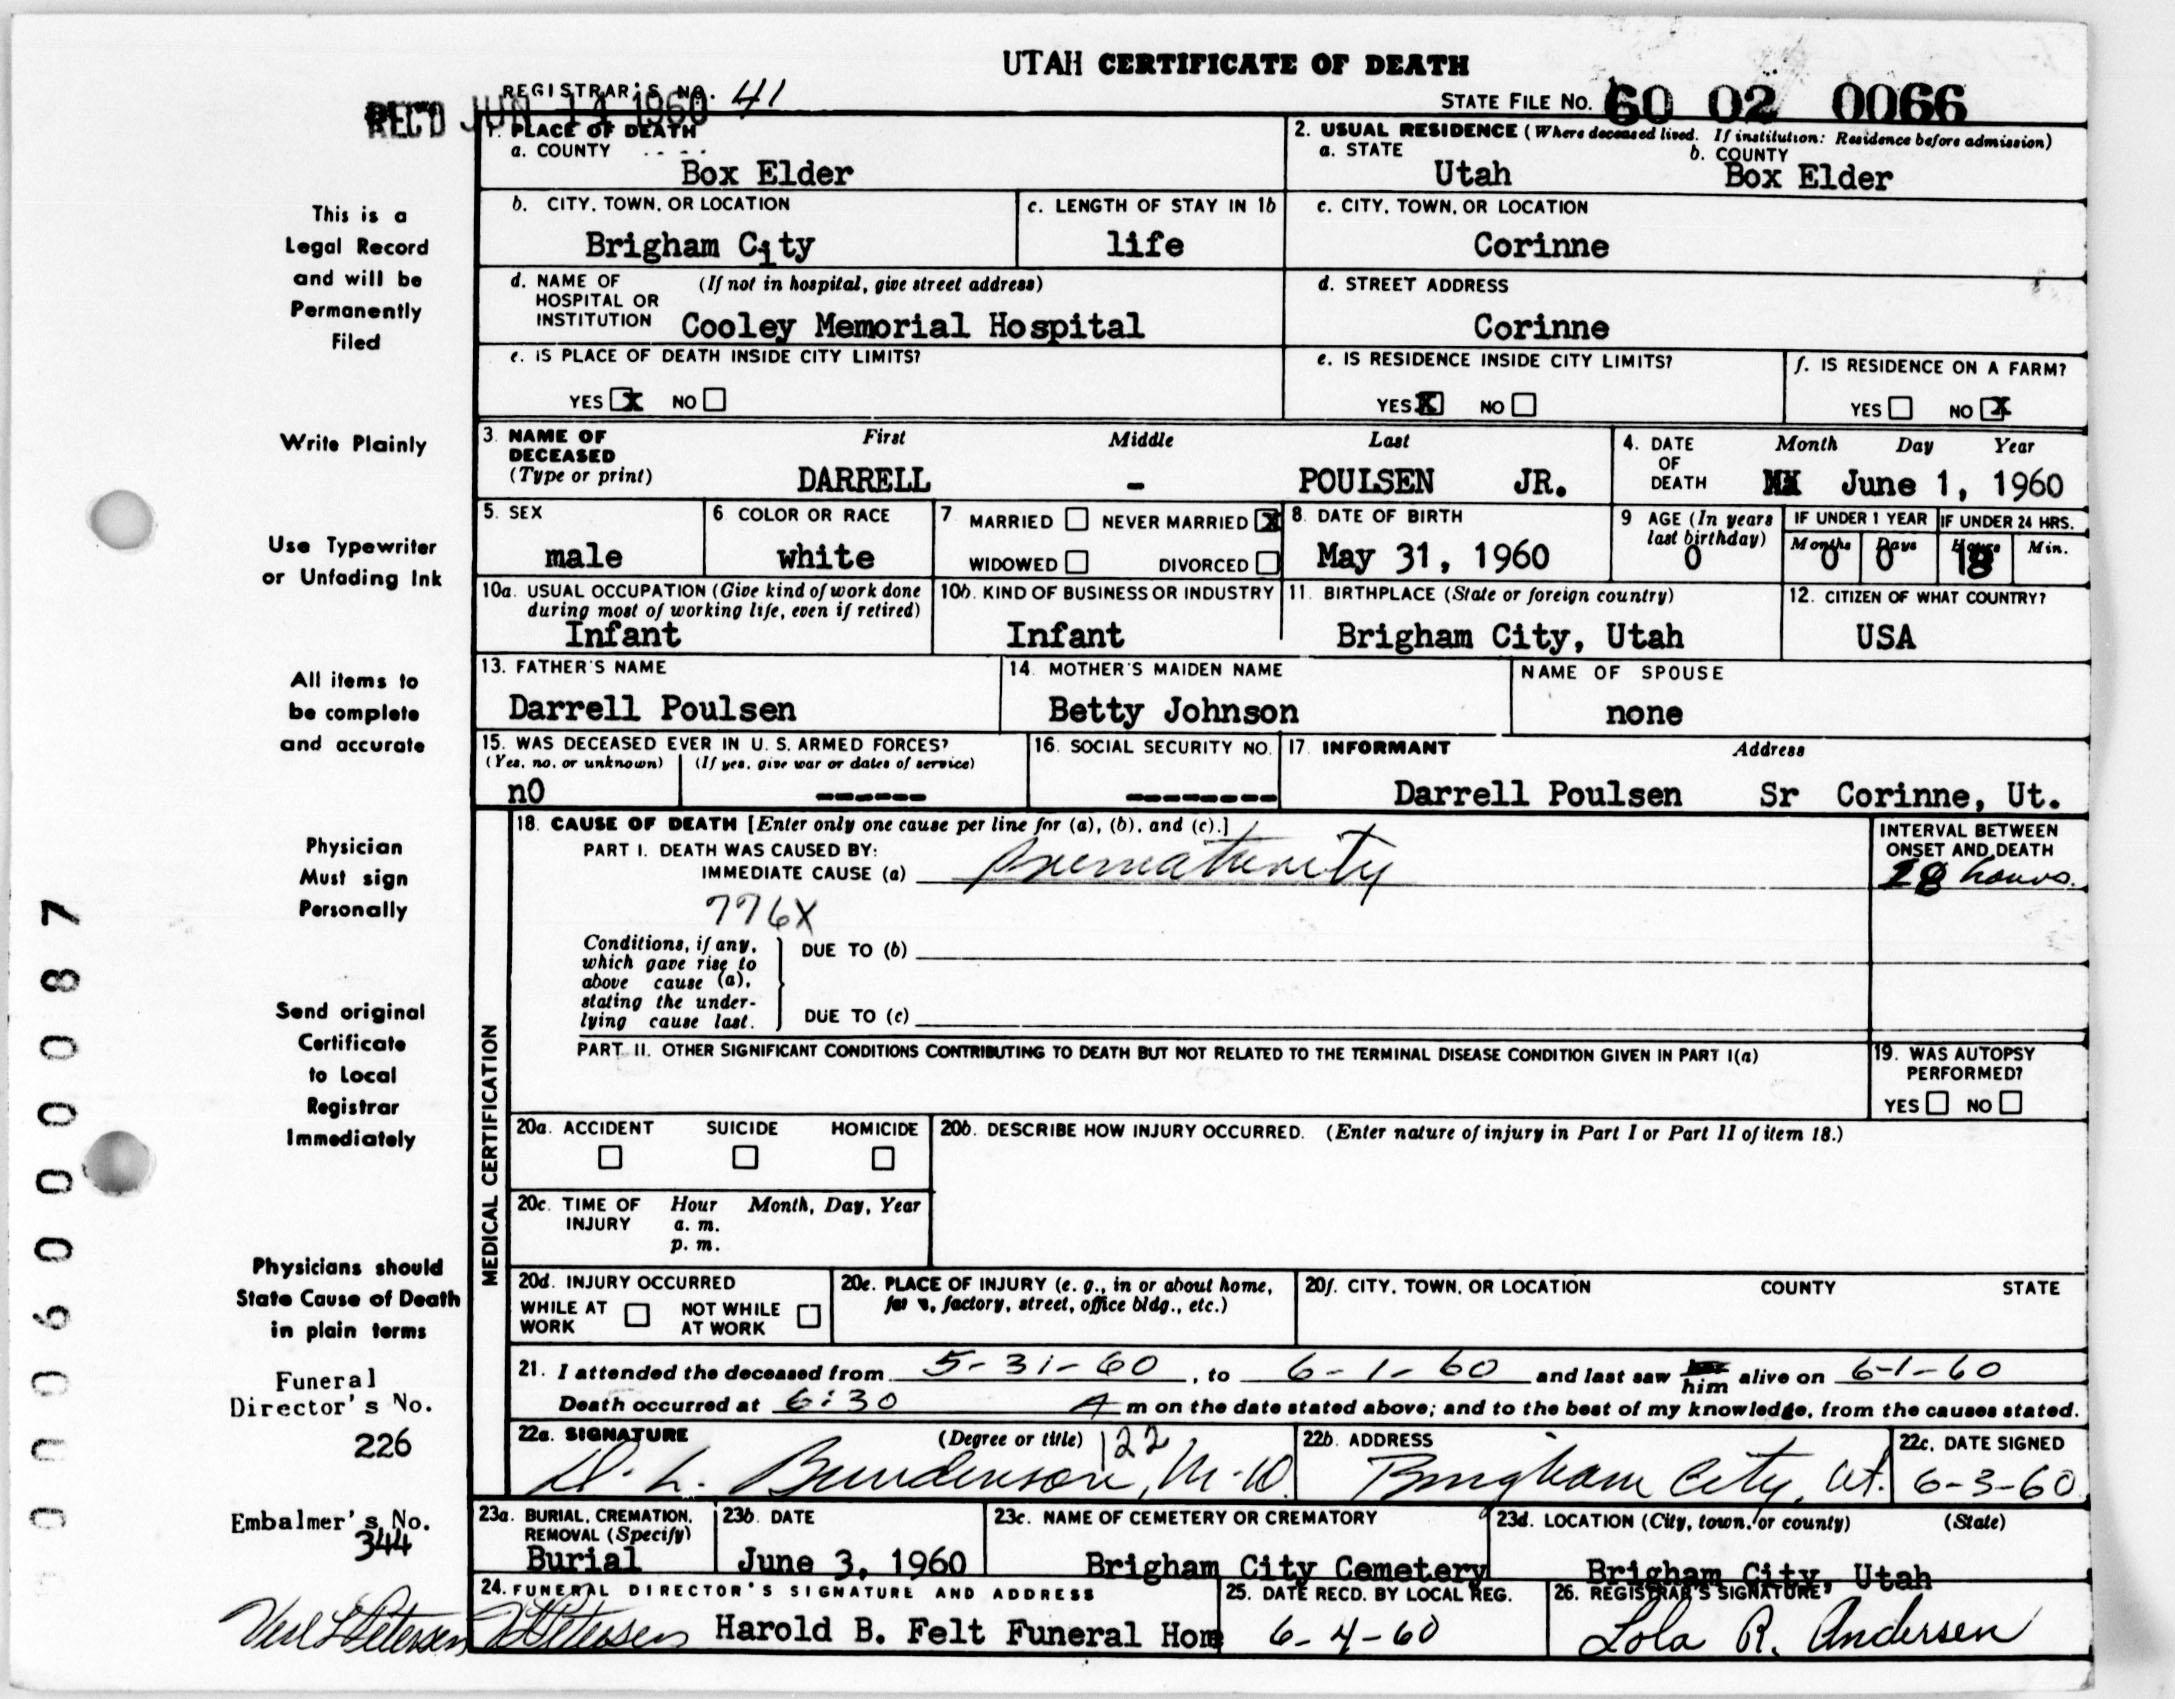 UTAH CERTIFICATE OF DEATH
REGISTRAR'S NO. 41
REC'D JUN 14 1960
STATE FILE NO. 60 02 0066
1. PLACE OF DEATH
a. COUNTY
Box Elder
2. USUAL RESIDENCE (Where deceased lived. If institution: Residence before admission)
a. STATE b. COUNTY
Utah Box Elder
b. CITY, TOWN, OR LOCATION
Brigham City
c. LENGTH OF STAY IN 1b
life
c. CITY, TOWN, OR LOCATION
Corinne
d. NAME OF (If not in hospital, give street address)
HOSPITAL OR
INSTITUTION Cooley Memorial Hospital
d. STREET ADDRESS
Corinne
e. IS PLACE OF DEATH INSIDE CITY LIMITS?
YES X NO
e. IS RESIDENCE INSIDE CITY LIMITS?
YES X NO
f. IS RESIDENCE ON A FARM?
YES NO X
3. NAME OF First Middle Last
DECEASED
(Type or print) DARRELL - POULSEN JR.
4. DATE Month Day Year
OF
DEATH June 1, 1960
5. SEX
male
6. COLOR OR RACE
white
7 MARRIED NEVER MARRIED X
WIDOWED DIVORCED
8. DATE OF BIRTH
May 31, 1960
9 AGE (In years
last birthday)
0
IF UNDER 1 YEAR IF UNDER 24 HRS.
Months Days Hours Min.
0 0 18
10a. USUAL OCCUPATION (Give kind of work done
during most of working life, even if retired)
Infant
10b. KIND OF BUSINESS OR INDUSTRY
Infant
11. BIRTHPLACE (State or foreign country)
Brigham City, Utah
12. CITIZEN OF WHAT COUNTRY?
USA
13. FATHER'S NAME
Darrell Poulsen
14. MOTHER'S MAIDEN NAME
Betty Johnson
NAME OF SPOUSE
none
15. WAS DECEASED EVER IN U. S. ARMED FORCES?
(Yes, no, or unknown) (If yes, give war or dates of service)
nO ------
16. SOCIAL SECURITY NO.
--------
17. INFORMANT Address
Darrell Poulsen Sr Corinne, Ut.
MEDICAL CERTIFICATION
18. CAUSE OF DEATH [Enter only one cause per line for (a), (b), and (c).]
PART I. DEATH WAS CAUSED BY:
IMMEDIATE CAUSE (a) Prematurity
INTERVAL BETWEEN
ONSET AND DEATH
18 hours.
776X
Conditions, if any,
which gave rise to
above cause (a),
stating the under-
lying cause last.
DUE TO (b)
DUE TO (c)
PART II. OTHER SIGNIFICANT CONDITIONS CONTRIBUTING TO DEATH BUT NOT RELATED TO THE TERMINAL DISEASE CONDITION GIVEN IN PART I(a)
19. WAS AUTOPSY
PERFORMED?
YES NO
20a. ACCIDENT SUICIDE HOMICIDE
20b. DESCRIBE HOW INJURY OCCURRED. (Enter nature of injury in Part I or Part II of item 18.)
20c. TIME OF Hour Month, Day, Year
INJURY a. m.
p. m.
20d. INJURY OCCURRED
WHILE AT NOT WHILE
WORK AT WORK
20e. PLACE OF INJURY (e. g., in or about home,
factory, street, office bldg., etc.)
20f. CITY, TOWN, OR LOCATION COUNTY STATE
21. I attended the deceased from 5-31-60, to 6-1-60 and last saw him alive on 6-1-60
Death occurred at 6:30 A m on the date stated above; and to the best of my knowledge, from the causes stated.
22a. SIGNATURE (Degree or title) 122
D. L. Bunderson, M.D.
22b. ADDRESS
Brigham City, Ut.
22c. DATE SIGNED
6-3-60
23a. BURIAL, CREMATION,
REMOVAL (Specify)
Burial
23b. DATE
June 3, 1960
23c. NAME OF CEMETERY OR CREMATORY
Brigham City Cemetery
23d. LOCATION (City, town, or county) (State)
Brigham City, Utah
24. FUNERAL DIRECTOR'S SIGNATURE AND ADDRESS
Petersen Harold B. Felt Funeral Hom
25. DATE RECD. BY LOCAL REG.
6-4-60
26. REGISTRAR'S SIGNATURE
Lola R. Andersen
This is a
Legal Record
and will be
Permanently
Filed
Write Plainly
Use Typewriter
or Unfading Ink
All items to
be complete
and accurate
Physician
Must sign
Personally
Send original
Certificate
to Local
Registrar
Immediately
Physicians should
State Cause of Death
in plain terms
Funeral
Director's No.
226
Embalmer's No.
344
Petersen
0006000087